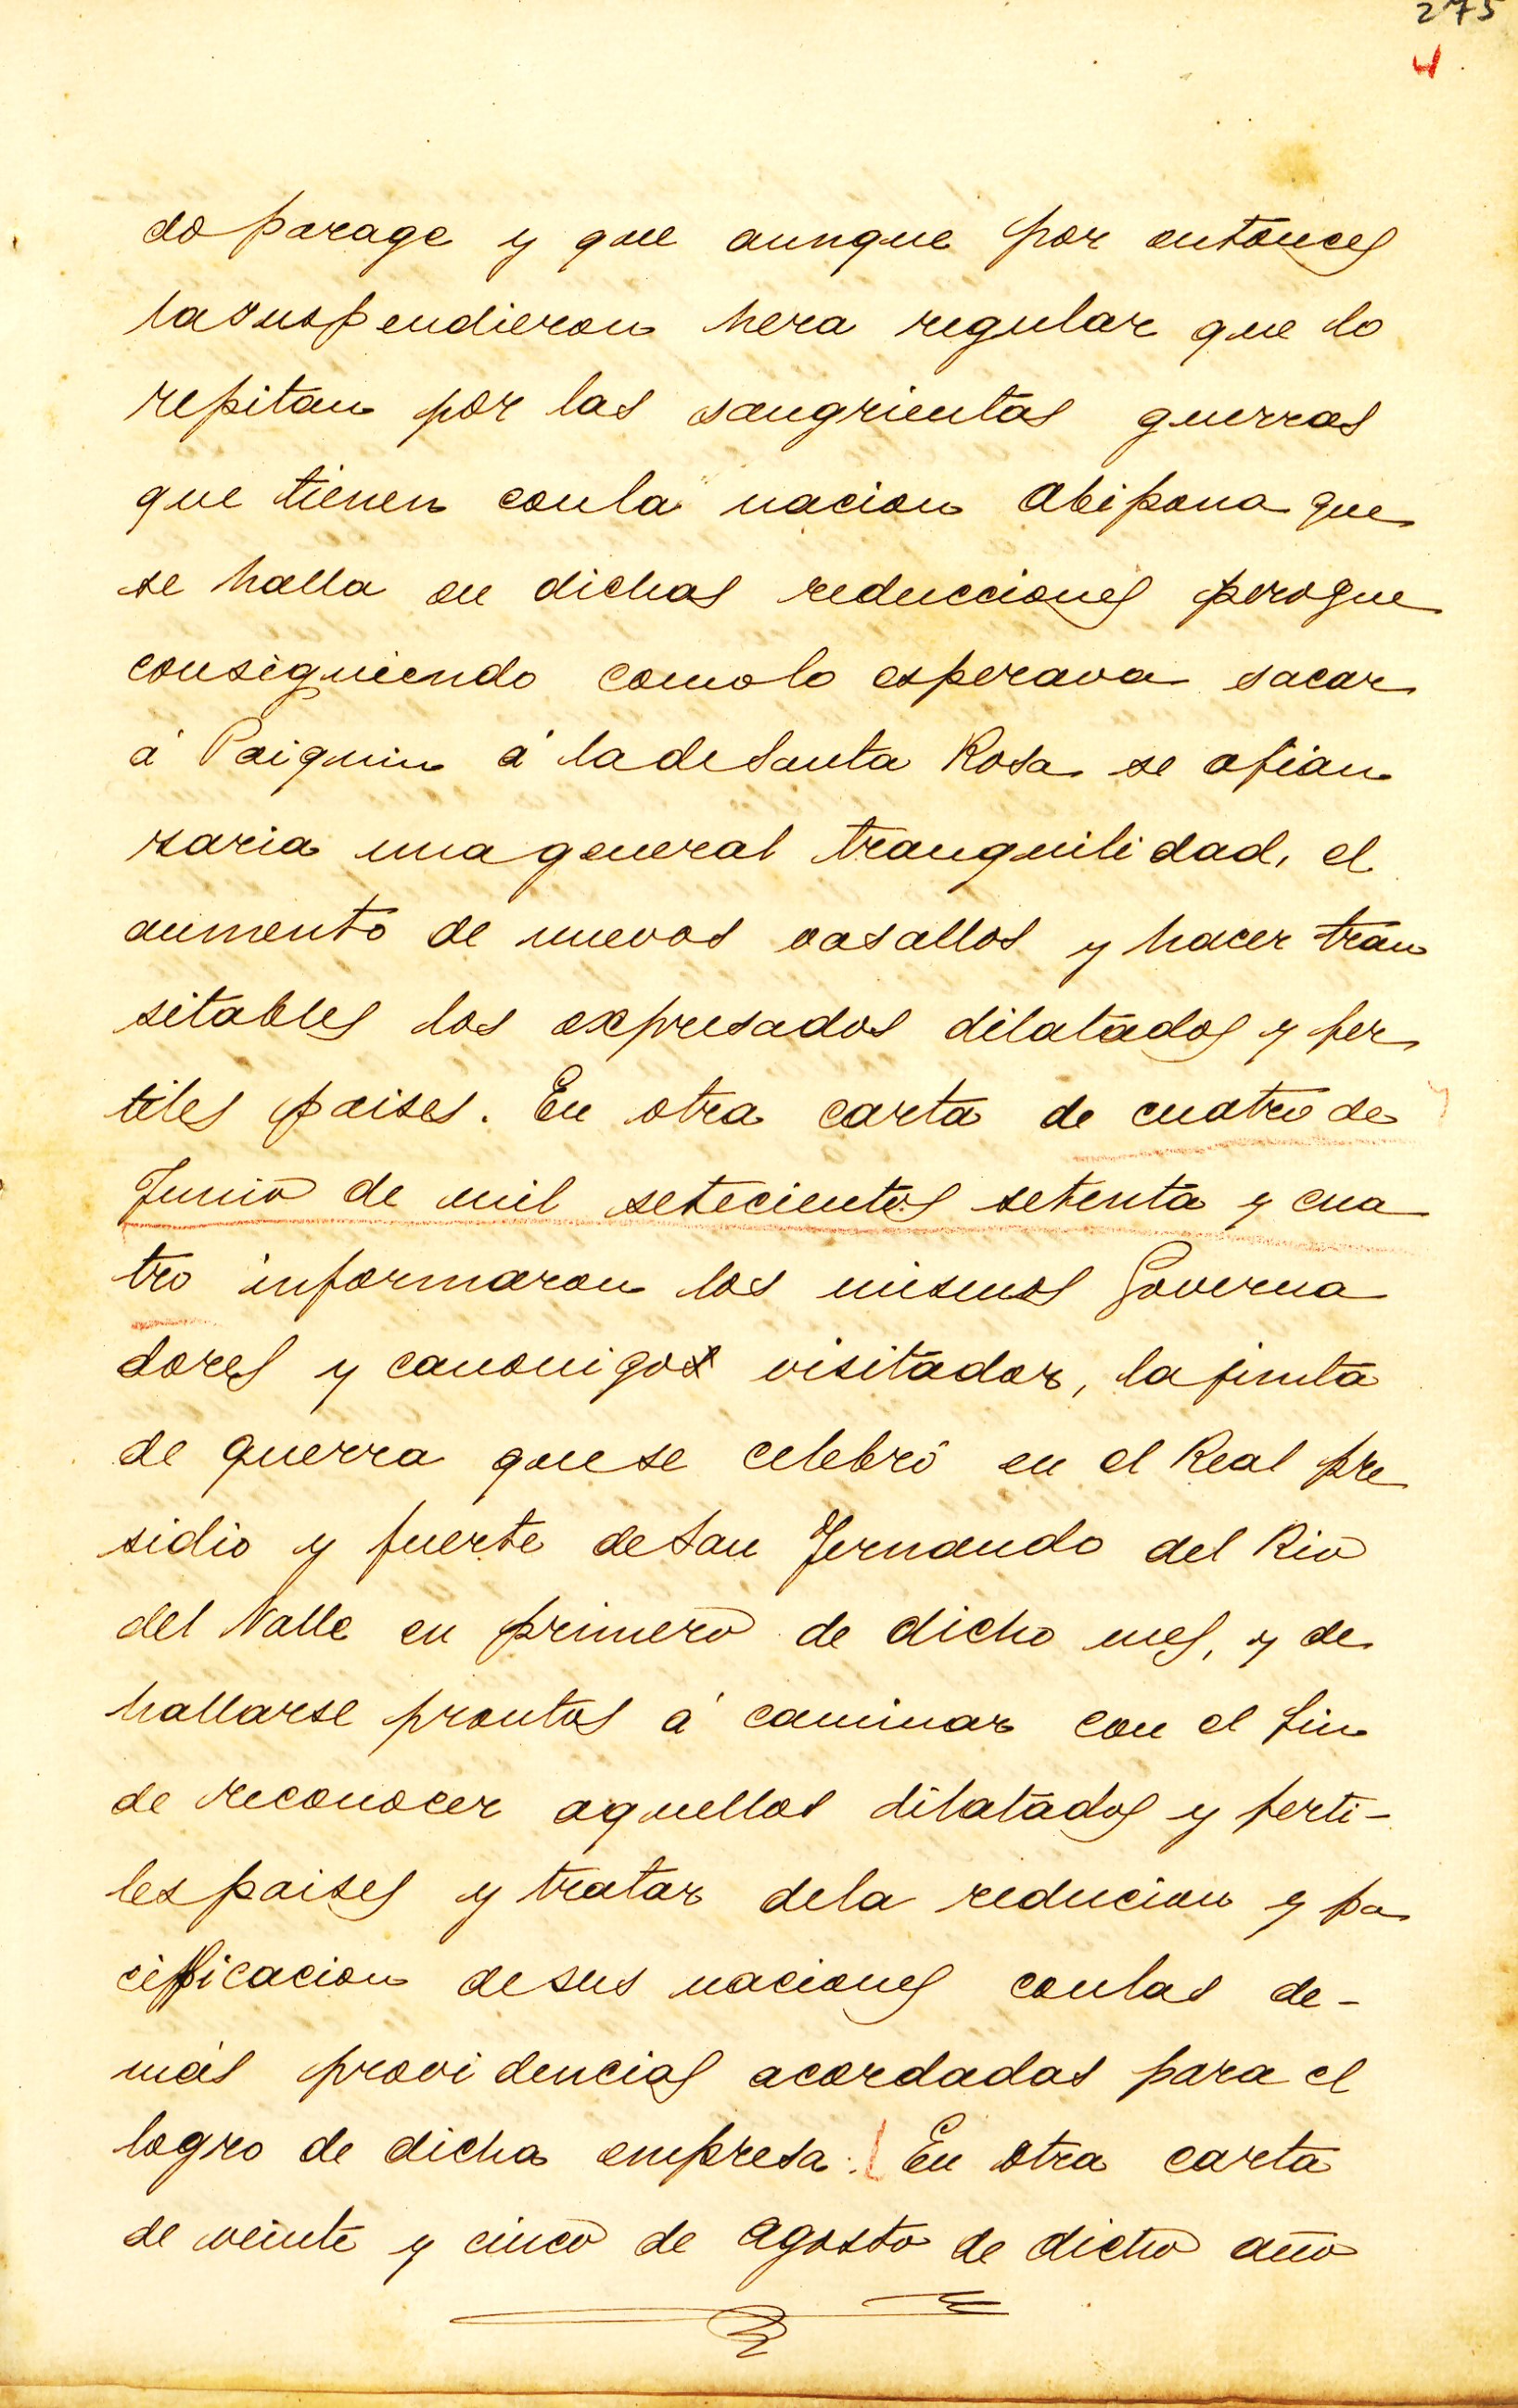 275
4
do parage y que aunque por entonces
la suspendieron hera regular que lo
repitan por las sangrientas guerras
que tienen con la nacion Abipona que
se halla en dichas reducciones pero que
consiguiendo como lo esperava sacar
á Paiquin á la de Santa Rosa se afian
saria una general tranquilidad, el
aumento de nuevos vasallos y hacer tran
sitables los expresados dilatados y fer
tiles paises. En otra carta de cuatro de
Junio de mil setecientos setenta y cua
tro informaron los mismos Governa
dores y canonigos visitador, la junta
de guerra que se celebró en el Real pre
sidio y fuerte de San Fernando del Rio
del Valle en primero de dicho mes, y de
hallarse prontos á caminar con el fin
de reconocer aquellos dilatados y ferti-
les paises y tratar de la reducion y pa
cificacion de sus naciones con las de-
más providencias acordadas para el
logro de dicha empresa. En otra carta
de veinte y cinco de Agosto de dicho año